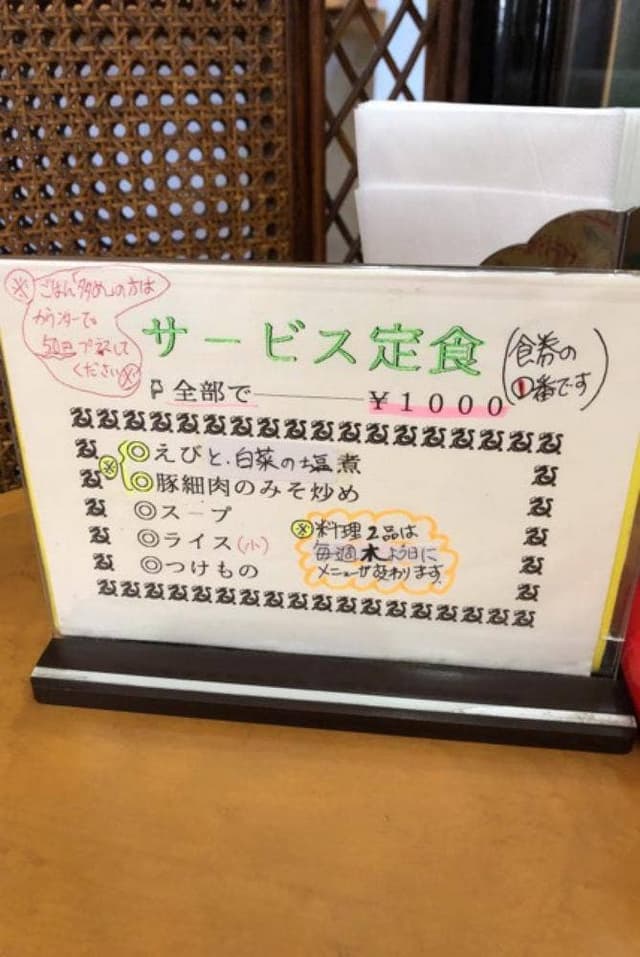 ※ごはん「多め」の方は
カウンターで
50円プラスして
ください※
サービス定食
(食券の
①番です)
全部で————¥1000
※◎えびと、白菜の塩煮
◎豚細肉のみそ炒め
◎スープ
◎ライス(小)
◎つけもの
※料理2品は
毎週木よう日に
メニューが変わります。